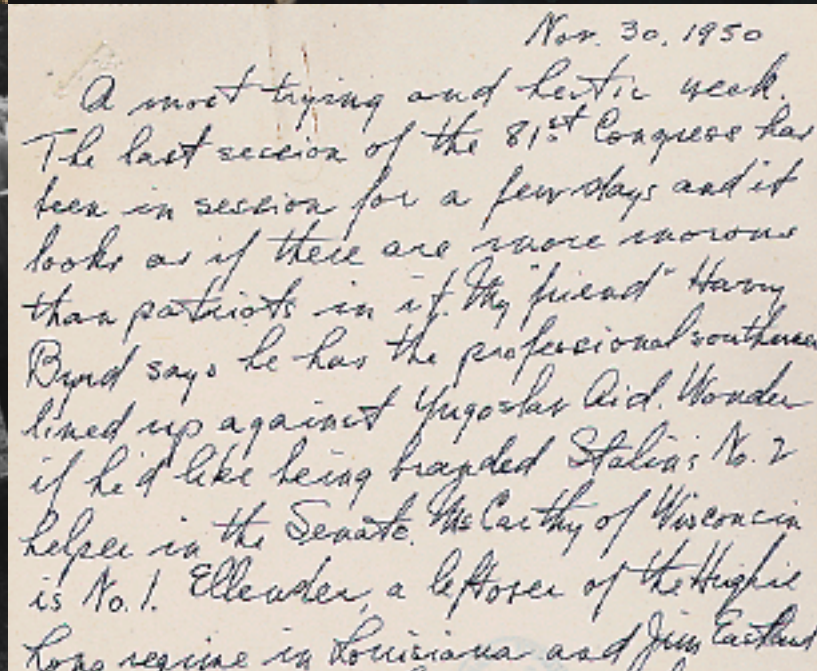 Nov. 30, 1950
A most trying and hectic week.
The last session of the 81st Congress has
been in session for a few days and it
looks as if there are more morons
than patriots in it. My "friend" Harry
Byrd says he has the professional southerner
lined up against Yugoslav Aid. Wonder
if he'd like being branded Stalin's No. 2
helper in the Senate. McCarthy of Wisconsin
is No. 1. Ellender, a leftover of the Hughie
Long regime in Louisiana and Jim Eastland